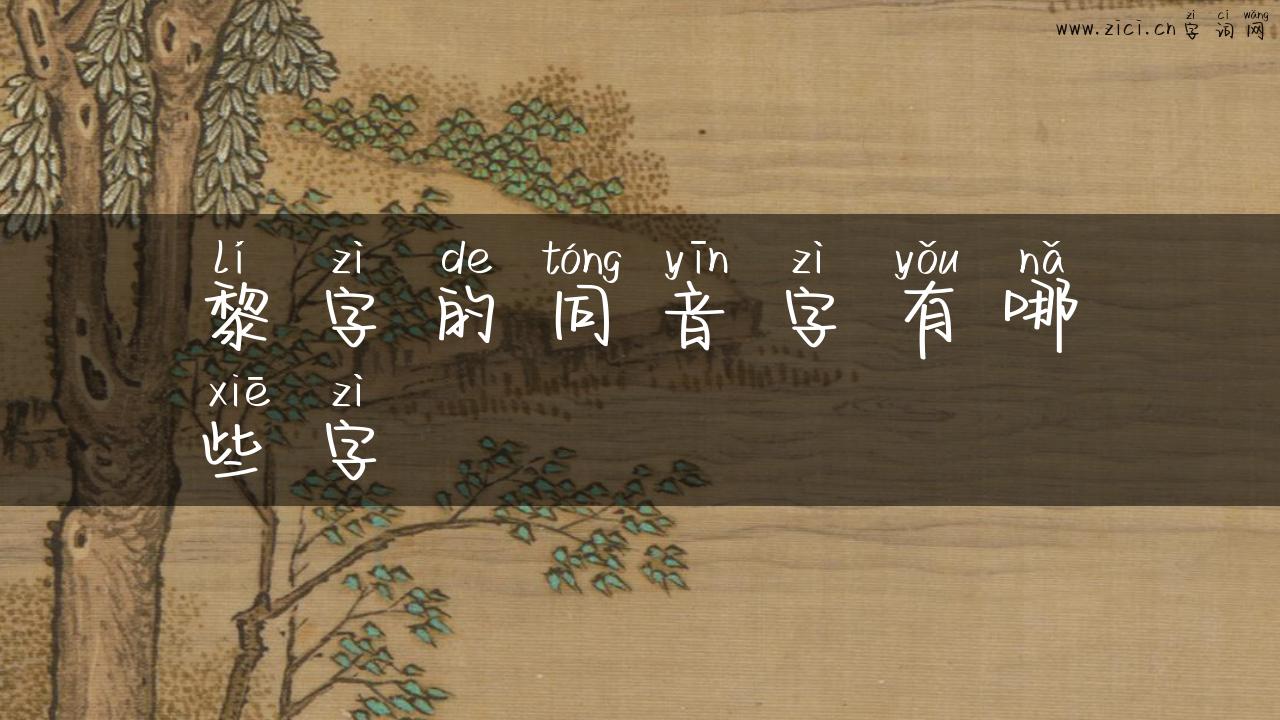 zì cí wǎng
www.zici.cn 字词网
lí zì de tóng yīn zì yǒu nǎ
黎字的同音字有哪
xiē zì
些字